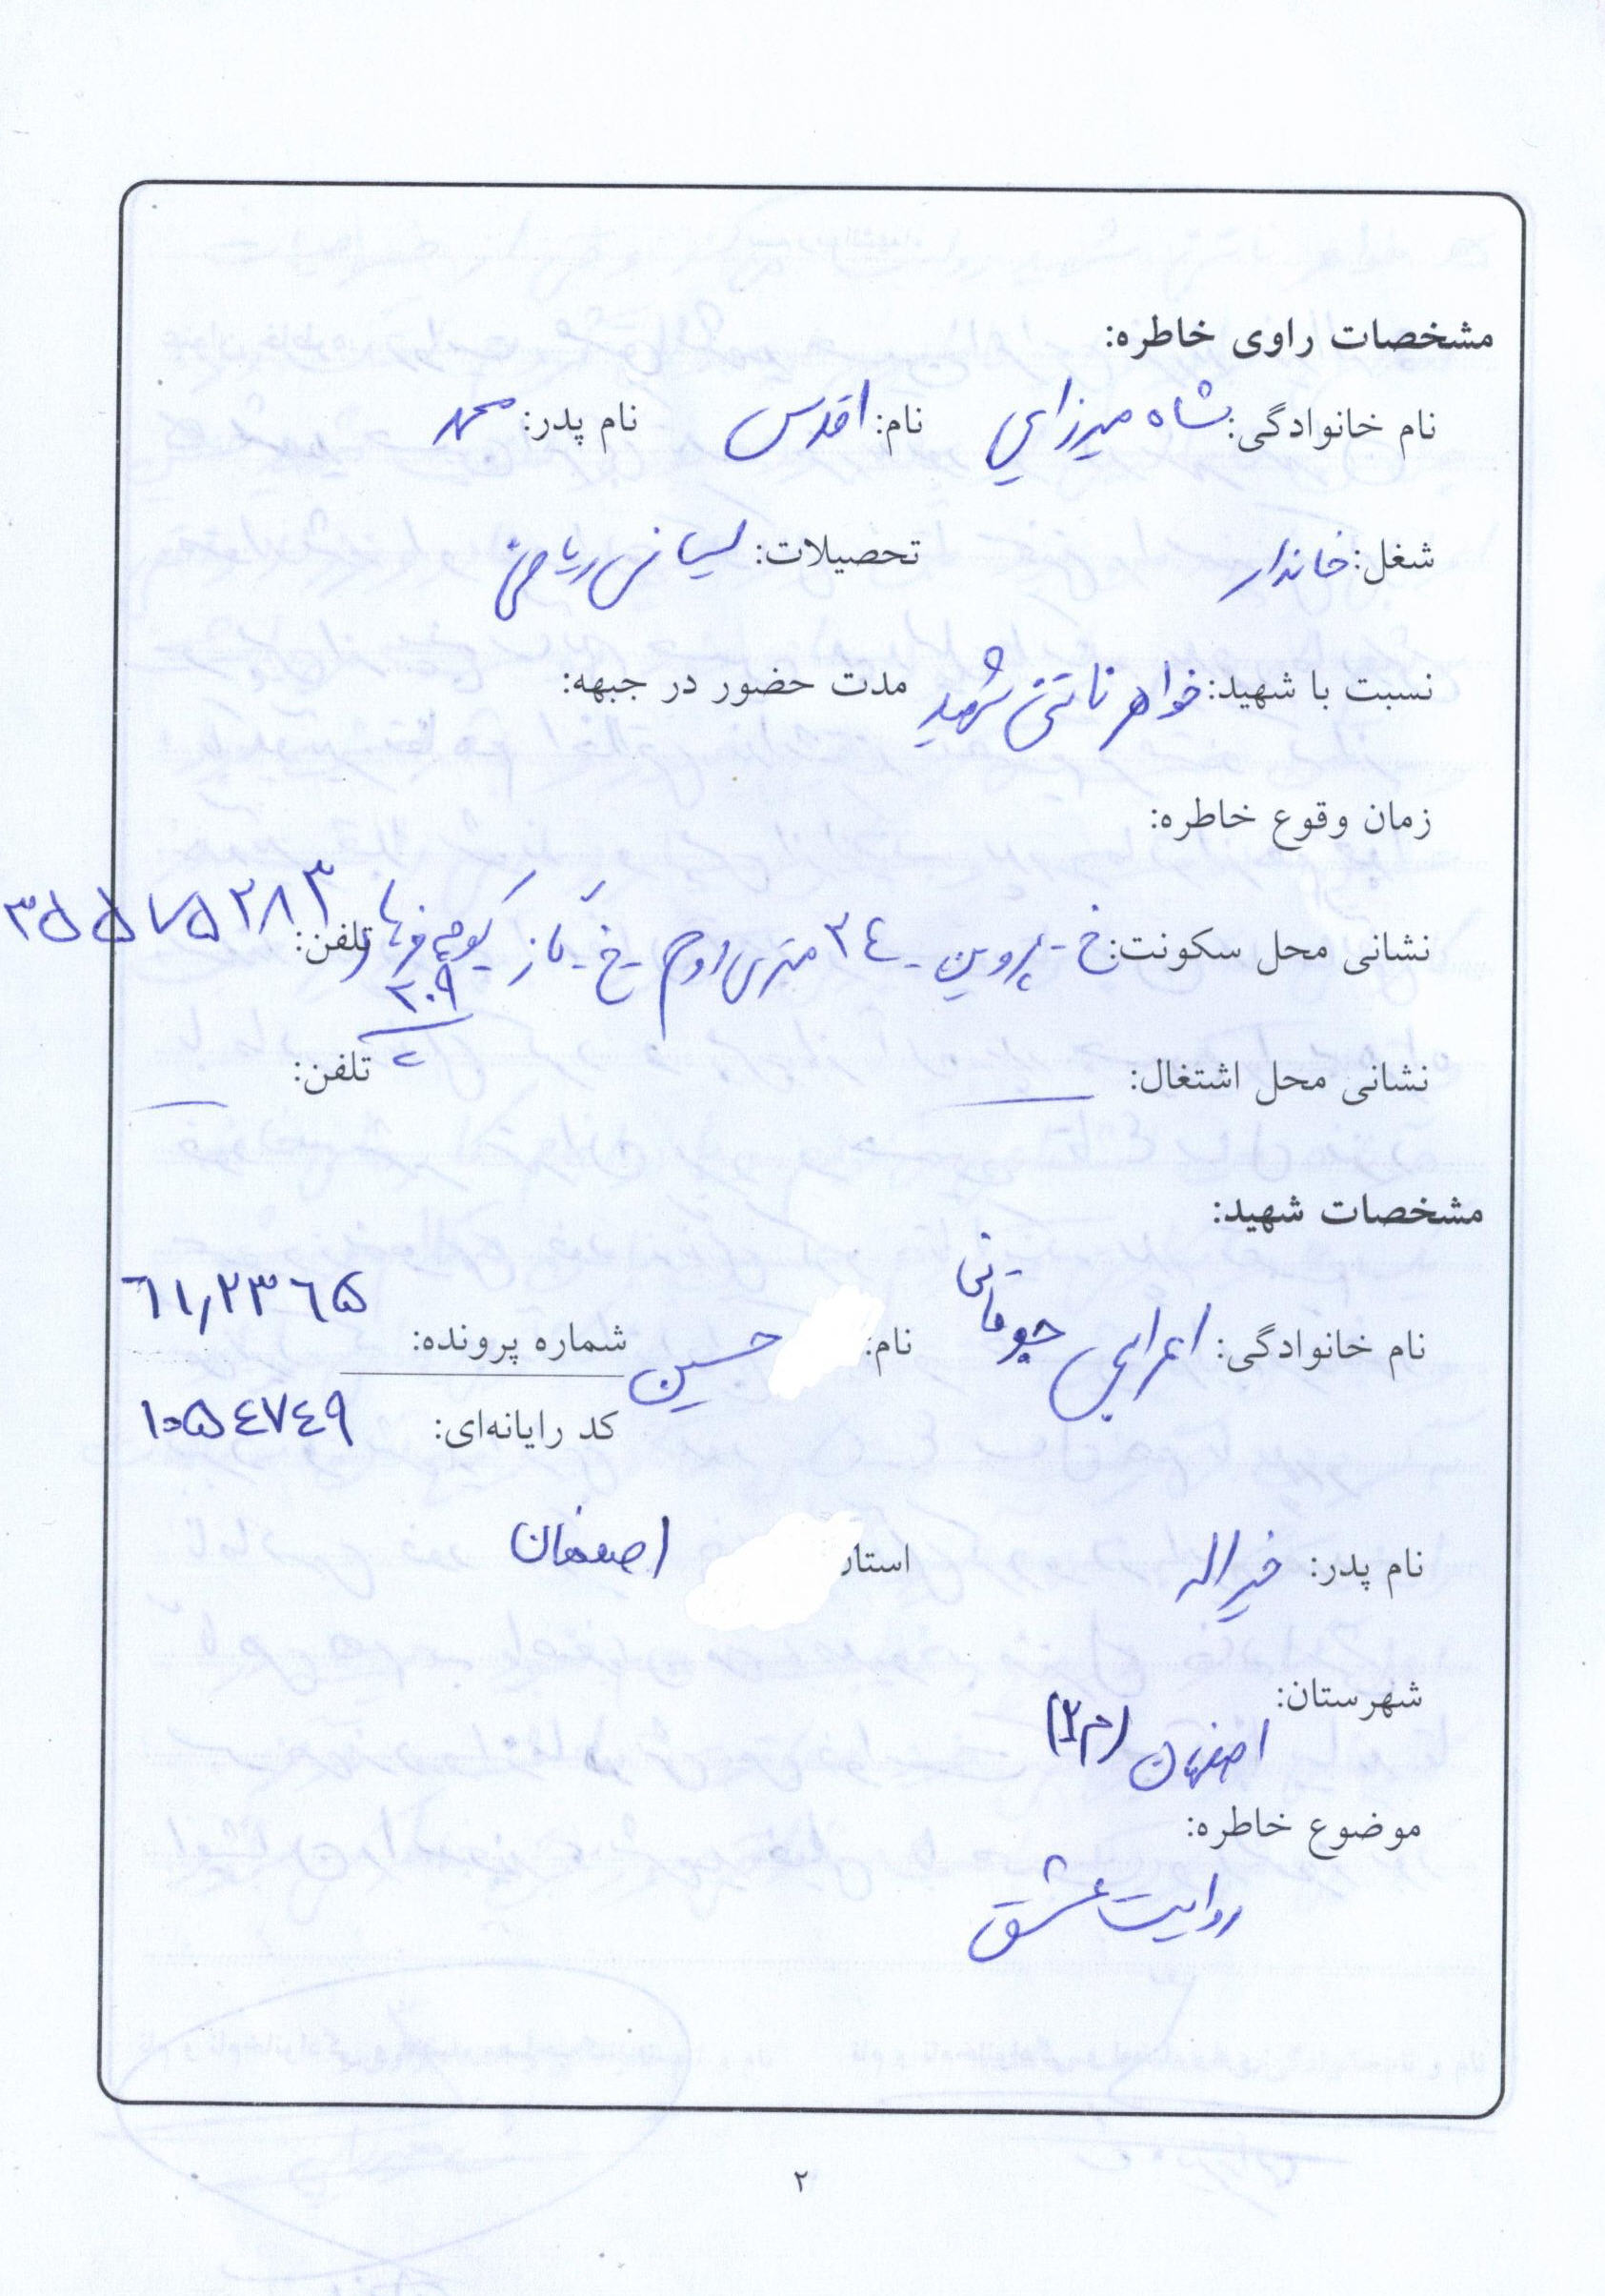 مشخصات راوی خاطره:
نام خانوادگی: شاه میرزایی نام: اقدس نام پدر: محمد
شغل: خاندار تحصیلات: لیسانس ریاضی
نسبت با شهید: خواهر ناتنی شهید مدت حضور در جبهه:
زمان وقوع خاطره:
نشانی محل سکونت: خ - پروین - ٢٤ متری دوم - خ - تلفن: ٣٥٥٧٥٢٨٣
٢٠٩
نشانی محل اشتغال: تلفن:
مشخصات شهید:
نام خانوادگی: اعرابی جوقانی نام: حسین شماره پرونده: ٦١٫٢٣٦٥
کد رایانه‌ای: ١٠٥٤٧٤٩
نام پدر: خیراله استان اصفهان
شهرستان:
اصفهان (م٢)
موضوع خاطره:
روایت عشق
٢